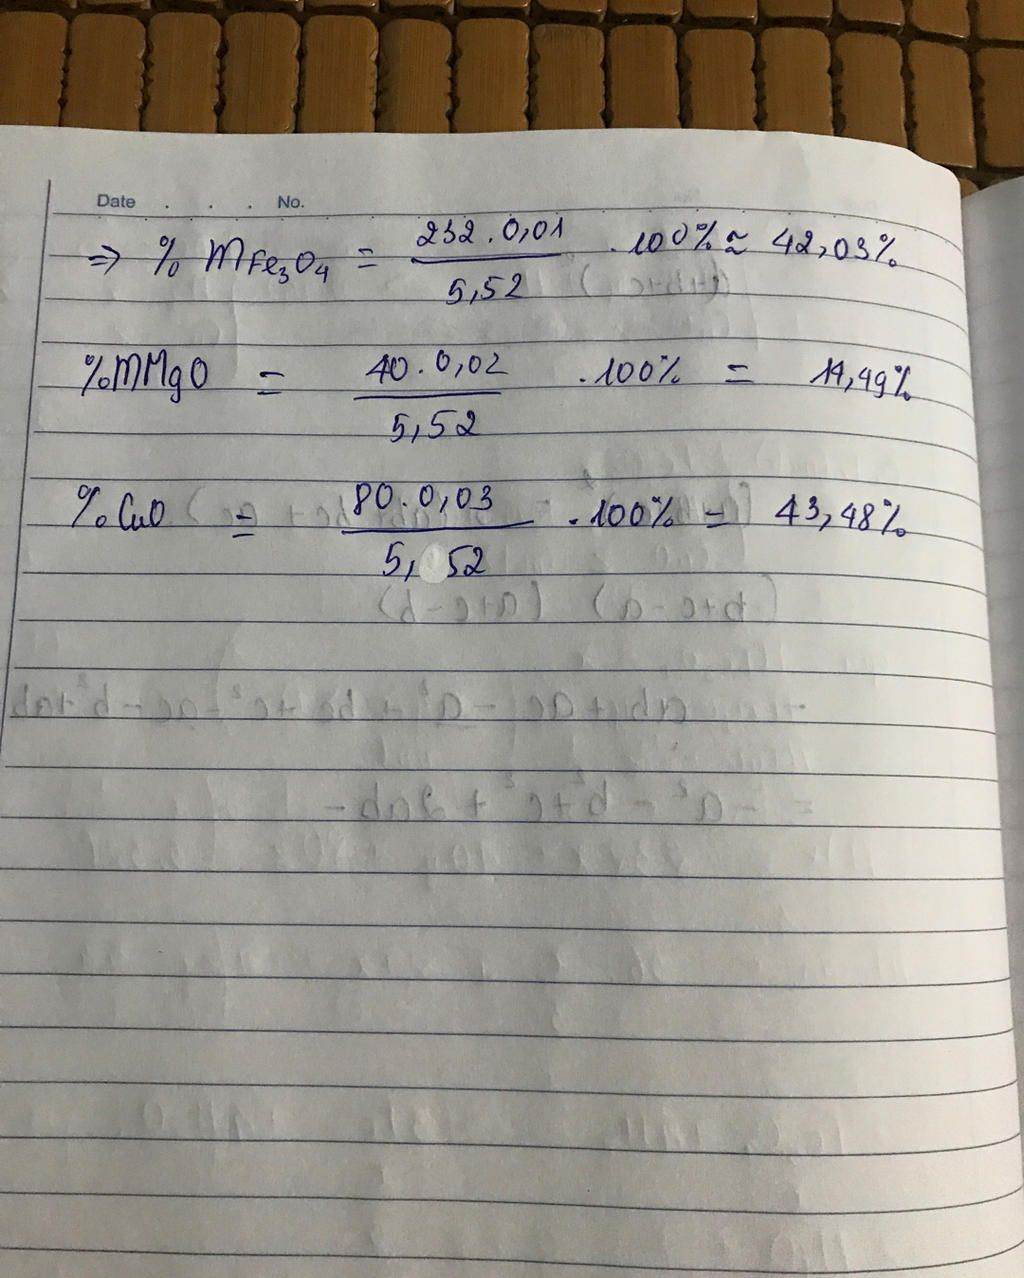 Date . . . No.
⇒ % mFe₃O₄ = 232.0,01 / 5,52 .100% ≈ 42,03%
%mMgO = 40.0,02 / 5,52 .100% = 14,49%
% CuO = 80.0,03 / 5,52 .100% = 43,48%
(b+c-a) (a+c-b)
= -a² - b² + c² + 2ab -